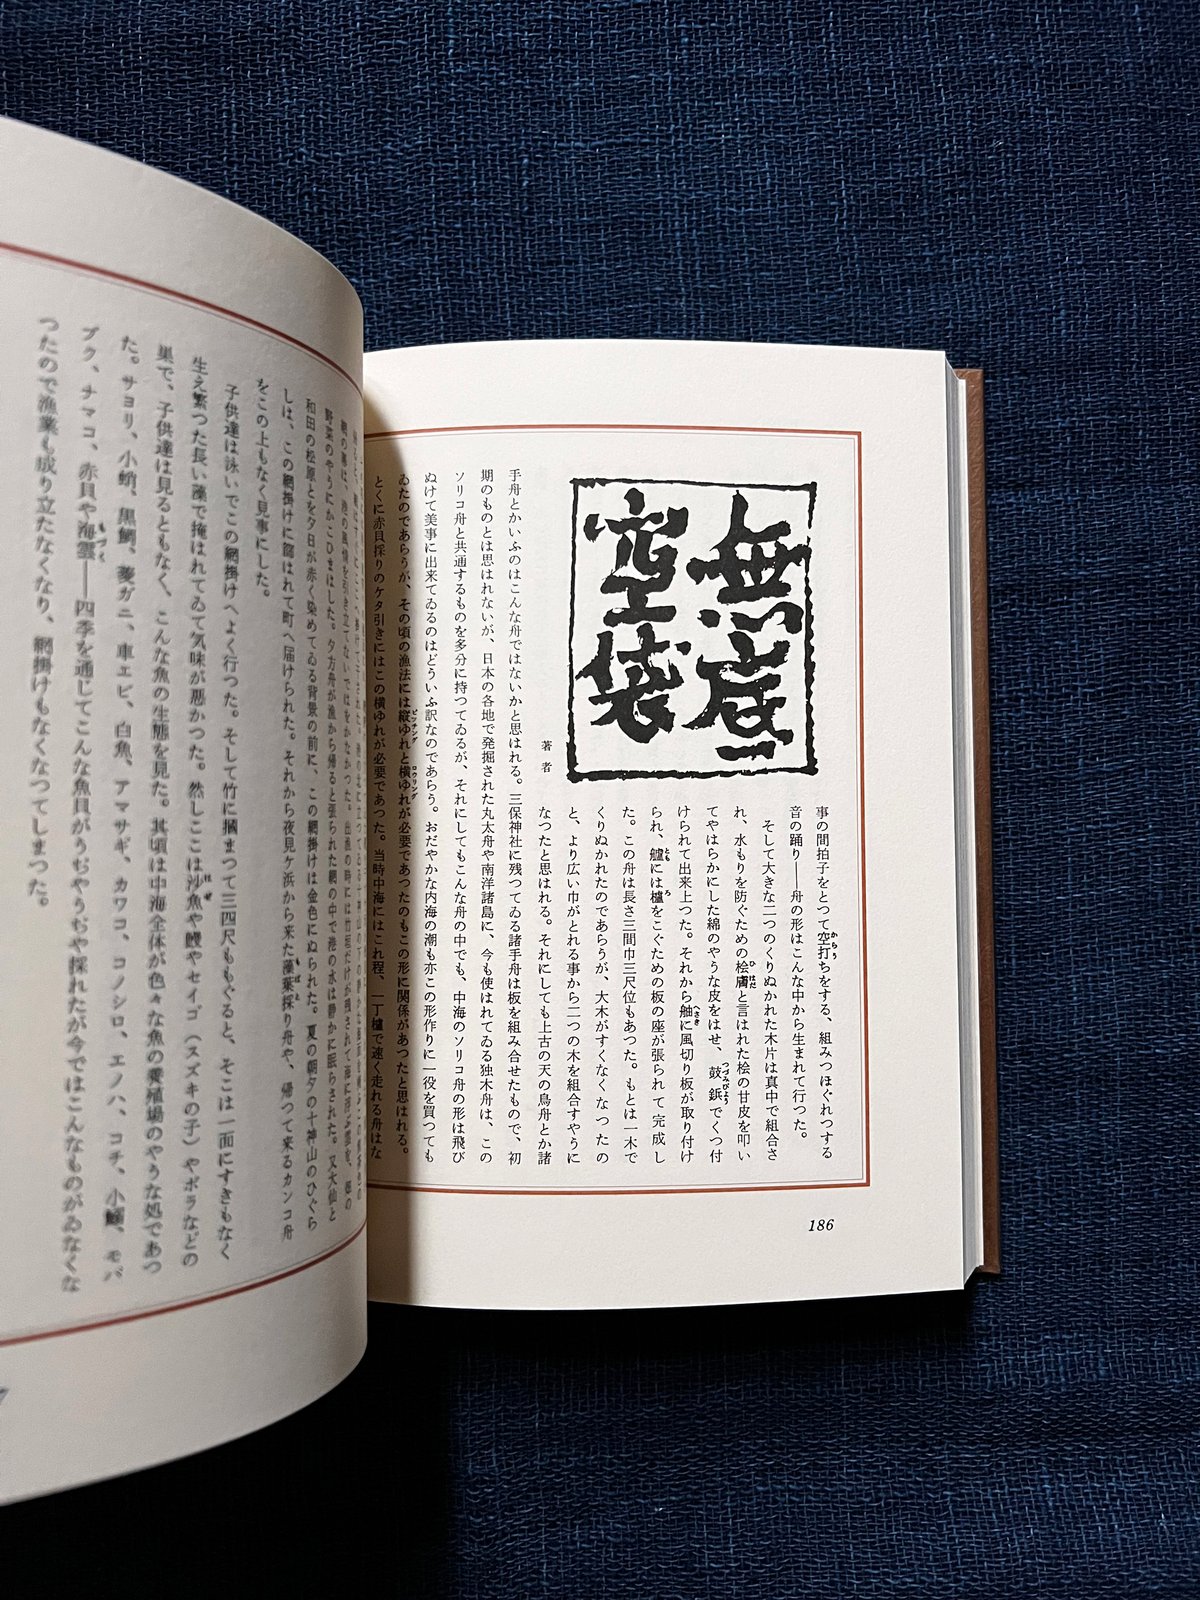 無底
空袋
著者
事の間拍子をとつて空打ちをする、組みつほぐれつする
音の踊り――舟の形はこんな中から生まれて行つた。
そして大きな二つのくりぬかれた木片は真中で組合さ
れ、水もりを防ぐための桧膚と言はれた桧の甘皮を叩い
てやはらかにした綿のやうな皮をはせ、鼓鋲でくつ付
けられて出来上つた。それから舳に風切り板が取り付け
られ、艫には櫨をこぐための板の座が張られて完成し
た。この舟は長さ三間巾三尺位もあつた。もとは一木で
くりぬかれたのであらうが、大木がすくなくなつたの
と、より広い巾がとれる事から二つの木を組合すやうに
なつたと思はれる。それにしても上古の天の鳥舟とか諸
手舟とかいふのはこんな舟ではないかと思はれる。三保神社に残つてゐる諸手舟は板を組み合せたもので、初
期のものとは思はれないが、日本の各地で発掘された丸太舟や南洋諸島に、今も使はれてゐる独木舟は、この
ソリコ舟と共通するものを多分に持つてゐるが、それにしてもこんな舟の中でも、中海のソリコ舟の形は飛び
ぬけて美事に出来てゐるのはどういふ訳なのであらう。おだやかな内海の潮も亦この形作りに一役を買つても
ゐたのであらうが、その頃の漁法には縦ゆれと横ゆれが必要であつたのもこの形に関係があつたと思はれる。
とくに赤貝採りのケタ引きにはこの横ゆれが必要であつた。当時中海にはこれ程、一丁櫨で速く走れる舟はな
186
野菜のやうにかこひまはした。夕方舟が漁から帰ると張られた網の中で港の水は静かに眠らされた。又大仙と
和田の松原とを夕日が赤く染めてゐる背景の前に、この網掛けは金色にぬられた。夏の朝夕の十神山のひぐら
しは、この網掛けに窟はれて町へ届けられた。それから夜見ケ浜から来た藻葉採り舟や、帰つて来るカンコ舟
をこの上もなく見事にした。
子供達は泳いでこの網掛けへよく行つた。そして竹に摑まつて三四尺ももぐると、そこは一面にすきもなく
生え繁つた長い藻で掩はれてゐて気味が悪かつた。然しここは沙魚や鰻やセイゴ（スズキの子）やボラなどの
巣で、子供達は見るともなく、こんな魚の生態を見た。其頃は中海全体が色々な魚の養殖場のやうな処であつ
た。サヨリ、小蛸、黒鯛、菱ガニ、車エビ、白魚、アマサギ、カワコ、コノシロ、エノハ、コチ、小鯛、モバ
ブク、ナマコ、赤貝や海雲――四季を通じてこんな魚貝がうぢやうぢや採れたが今ではこんなものがゐなくな
つたので漁業も成り立たなくなり、網掛けもなくなつてしまつた。